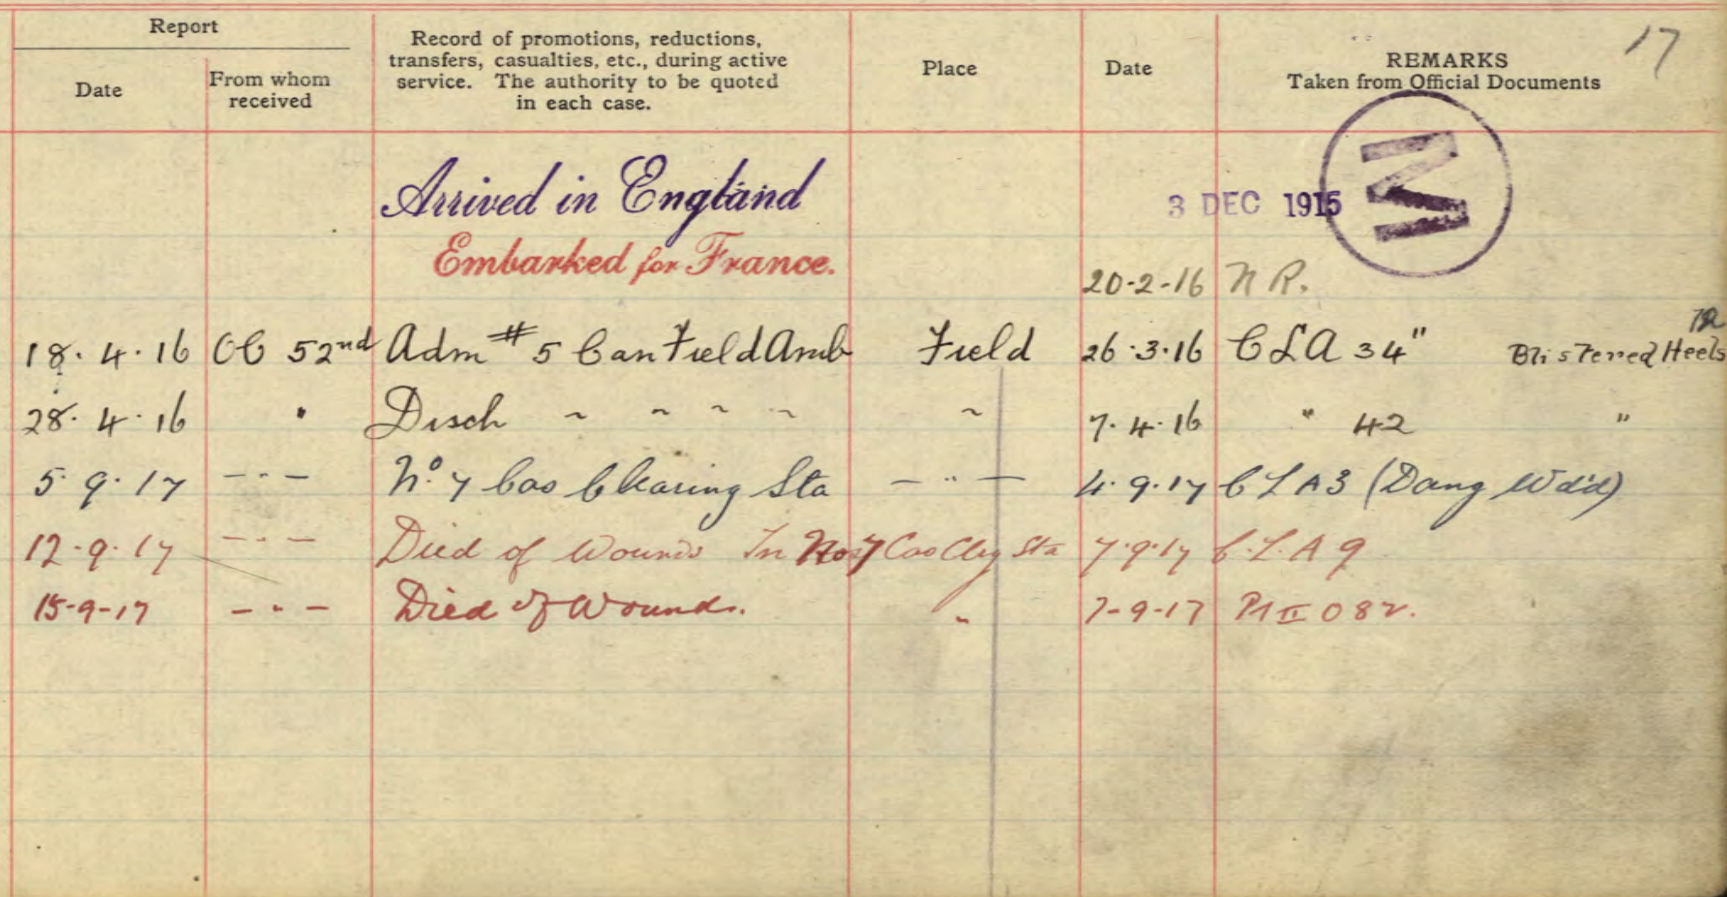 17
Report
Date
From whom
received
Record of promotions, reductions,
transfers, casualties, etc., during active
service. The authority to be quoted
in each case.
Place
Date
REMARKS
Taken from Official Documents
Arrived in England 3 DEC 1915 M
Embarked for France. 20-2-16 N R.
18. 4. 16 OC 52nd Adm #5 Can Field Amb Field 26.3.16 CLA 34" Blistered Heels
28. 4. 16 " Disch ~ ~ ~ ~ ~ 7.4.16 " 42 "
5. 9. 17 - " - No. 7 Cas Clearing Sta - " - 4.9.17 CLA3 (Dang Wd'd)
12.9.17 - " - Died of Wounds In No 7 Cas Clg Sta 7.9.17 C.L.A 9
15-9-17 - " - Died of Wounds. " 7-9-17 Pt II O 82.